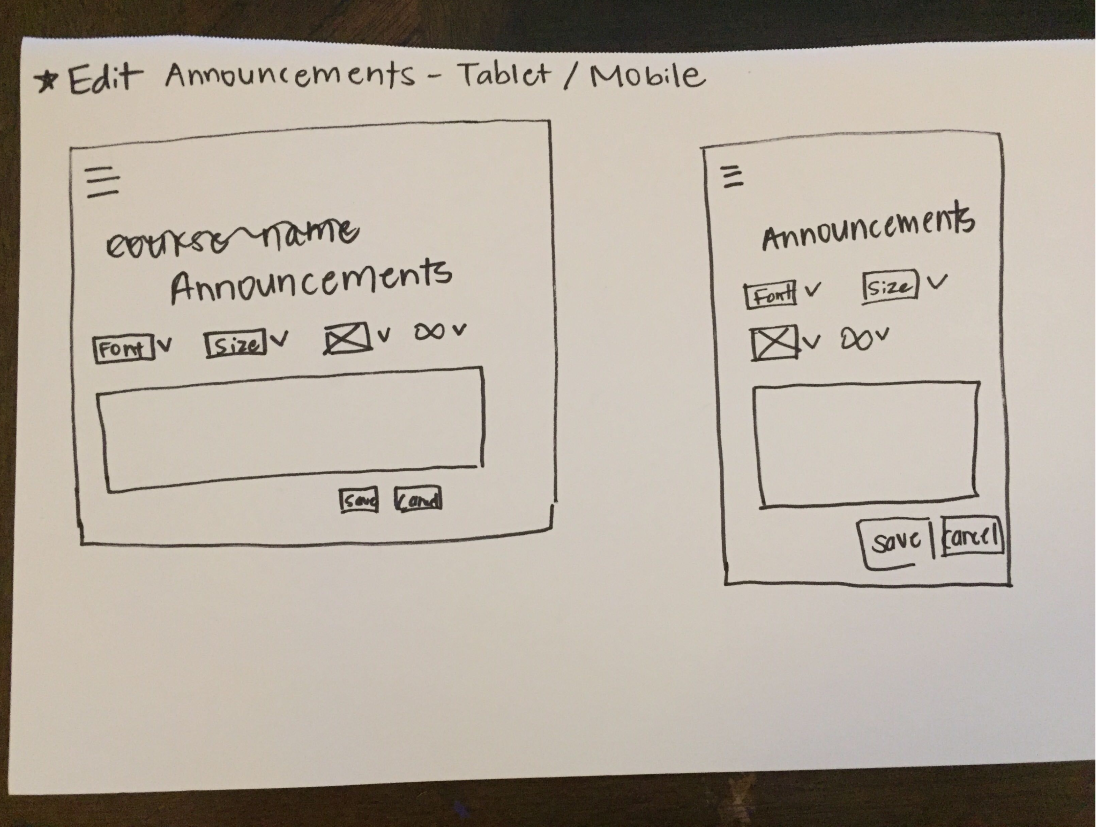 ★ Edit Announcements - Tablet / Mobile
course name
Announcements
Font Size
Save Cancel
Announcements
Font Size
Save Cancel